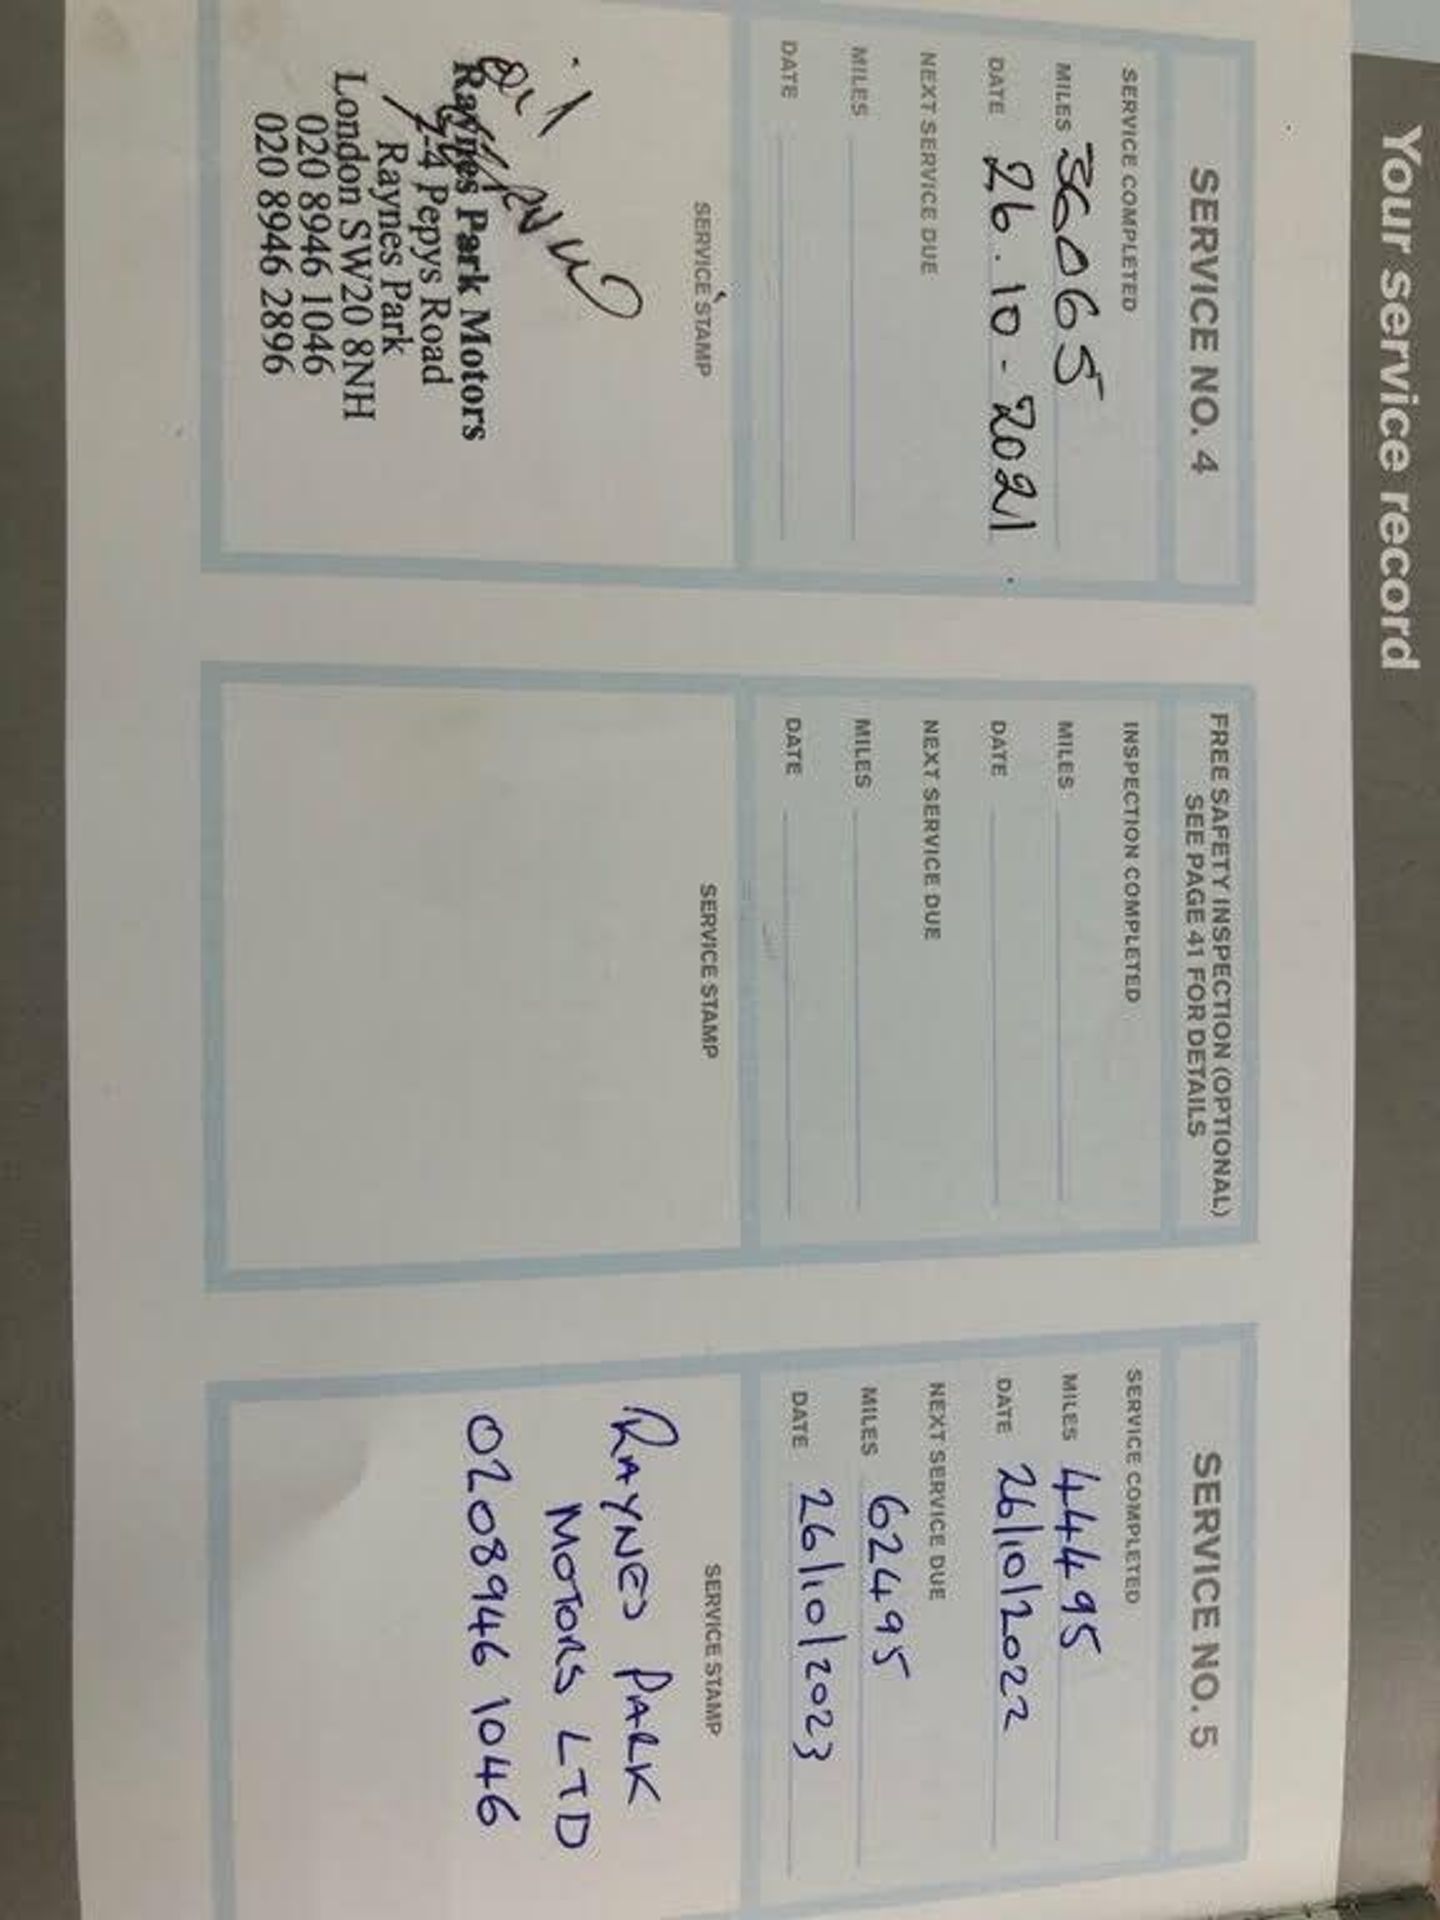 Your service record
SERVICE NO. 4
SERVICE COMPLETED
MILES 36065
DATE 26.10-2021.
NEXT SERVICE DUE
MILES
DATE
SERVICE STAMP
Raynes Park Motors
2-4 Pepys Road
Raynes Park
London SW20 8NH
020 8946 1046
020 8946 2896
FREE SAFETY INSPECTION (OPTIONAL)
SEE PAGE 41 FOR DETAILS
INSPECTION COMPLETED
MILES
DATE
NEXT SERVICE DUE
MILES
DATE
SERVICE STAMP
SERVICE NO. 5
SERVICE COMPLETED
MILES 44495
DATE 26/10/2022
NEXT SERVICE DUE
MILES 62495
DATE 26/10/2023
SERVICE STAMP
RAYNES PARK
MOTORS LTD
0208946 1046